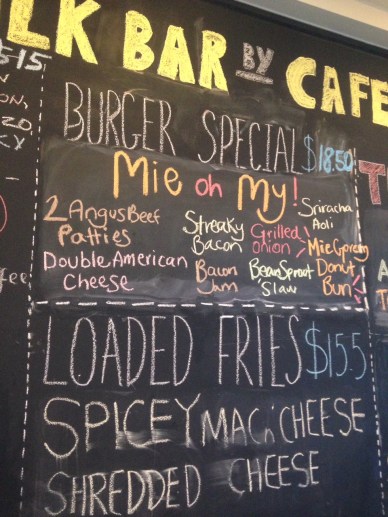 LK BAR BY CAFE
$15
BURGER SPECIAL $18.50
Mie oh My!
2 Angus Beef
Patties
Double American
Cheese
Streaky
Bacon
Bacon
Jam
Grilled
onion
Bean Sprout
Slaw
Sriracha
Aoli
Mie Goreng
Donut
Bun
LOADED FRIES $15.5
SPICEY MAC n' CHEESE
SHREDDED CHEESE